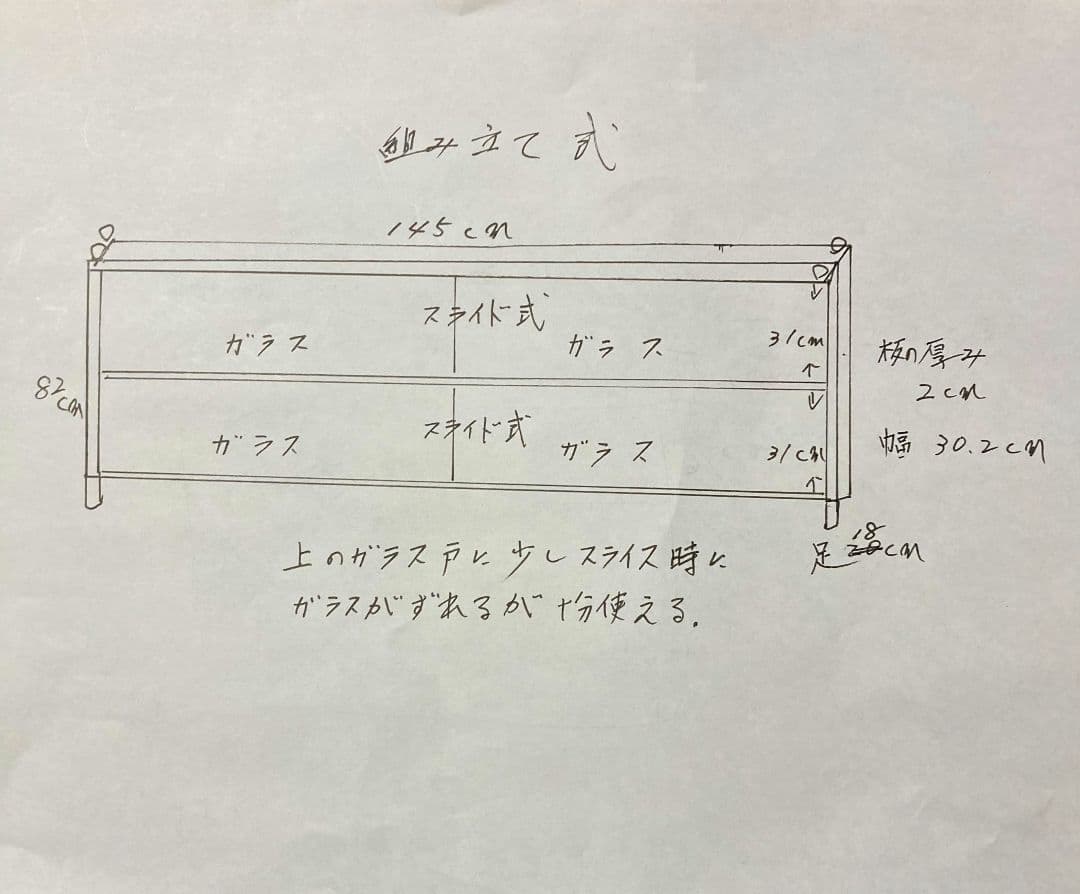 組み立て式
145cm
スライド式
ガラス
ガラス
31cm
82cm
板の厚み
2cm
スライド式
ガラス
ガラス
31cm
幅 30.2cm
足 18cm
上のガラス戸に少しスライス時に
ガラスがずれるが十分使える.